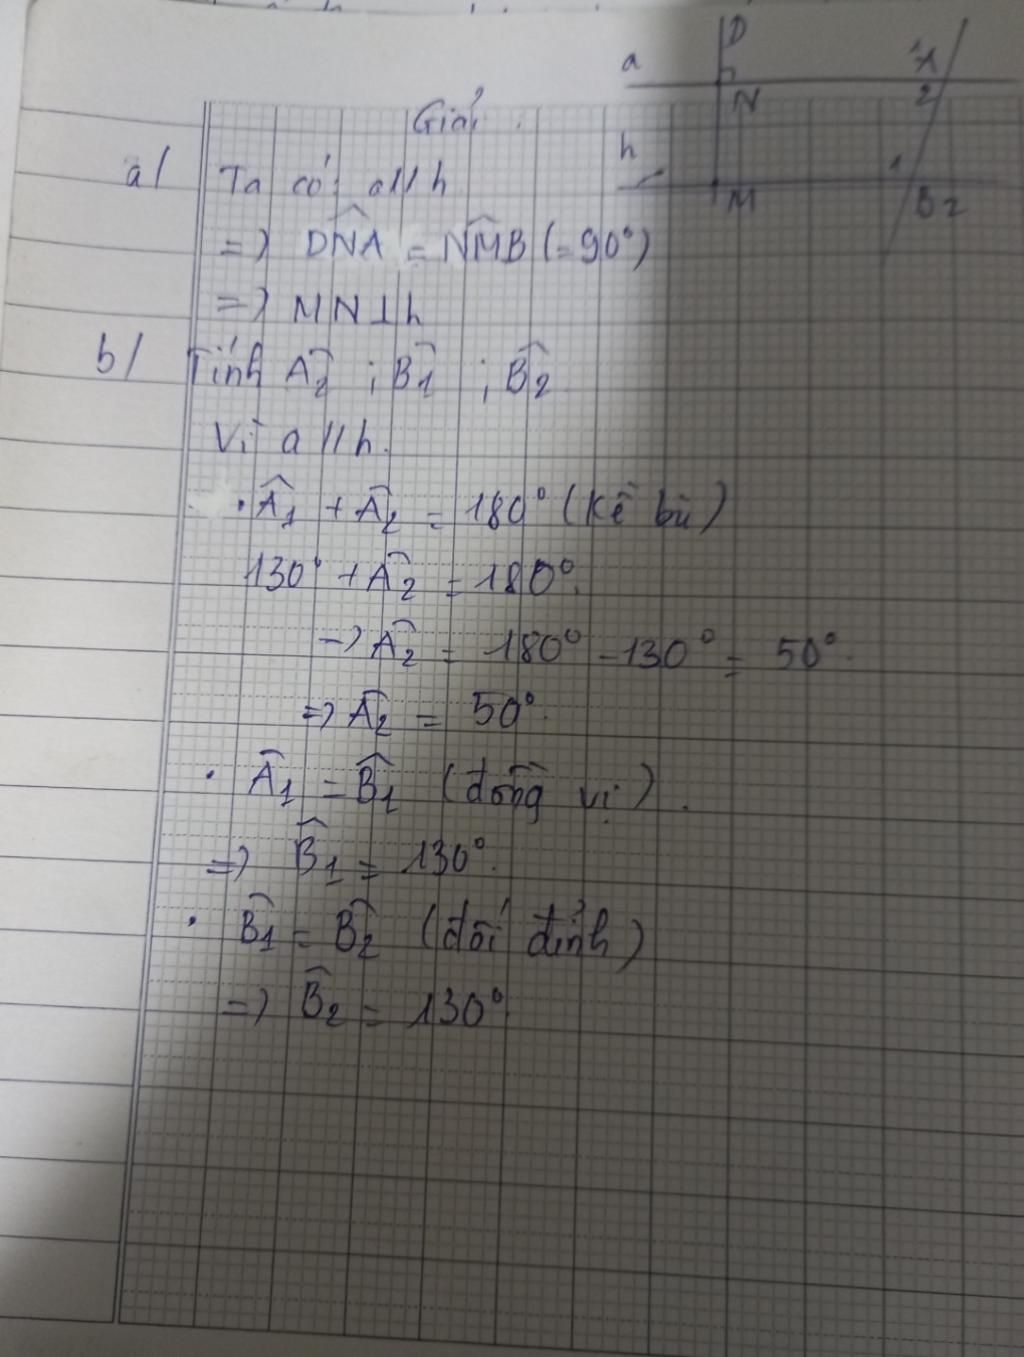 D
a
1 A
N
2
Giải
h
1
M
B 2
a/ Ta có: a // h
=> DNA^ = NMB^ (= 90°)
=> MN ⊥ h
b/ Tính A2^ ; B1^ ; B2^
Vì a // h.
. A1^ + A2^ = 180° (kề bù)
130° + A2^ = 180°.
-> A2^ = 180° - 130° = 50°.
=> A2^ = 50°.
. A1^ = B1^ (đồng vị).
=> B1^ = 130°.
. B1^ = B2^ (đối đỉnh)
=> B2^ = 130°.